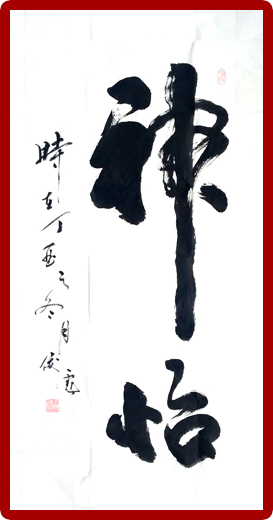 神怡
時在丁酉之冬月俊